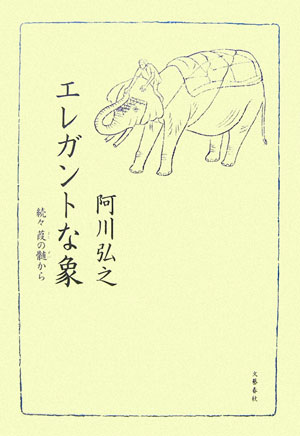 エレガントな象
続々 葭の髄から
阿川弘之
文藝春秋